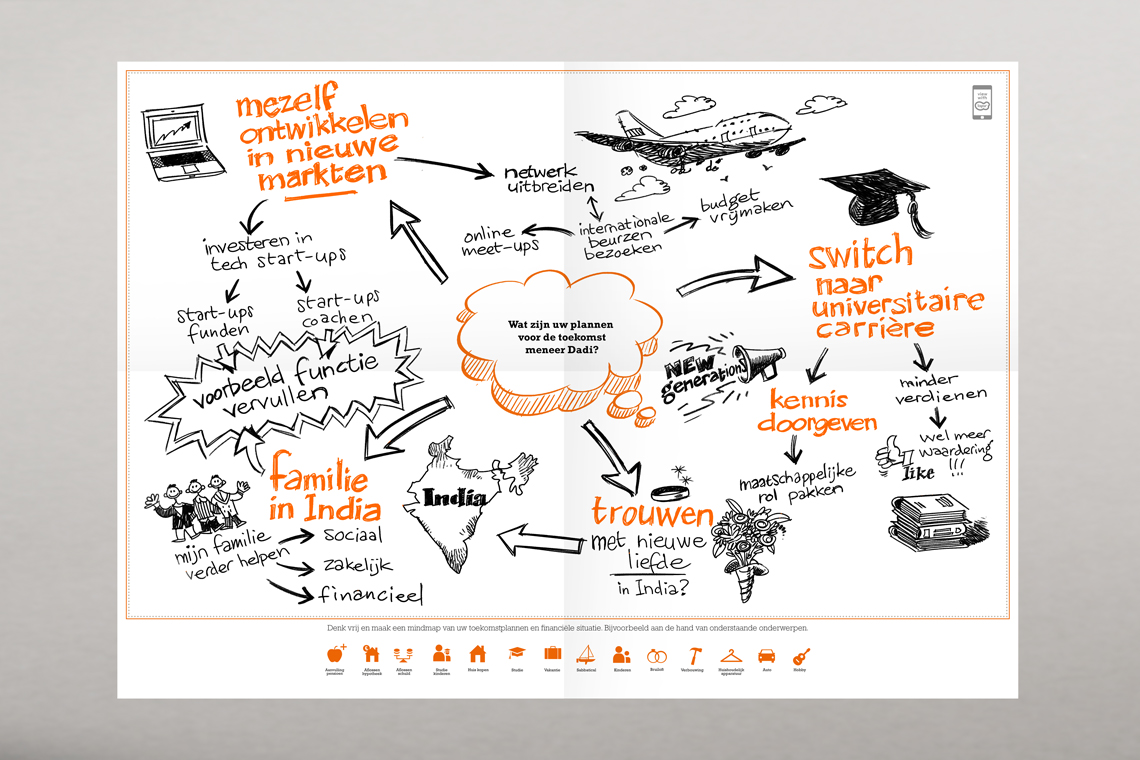 mezelf
ontwikkelen
in nieuwe
markten
netwerk
uitbreiden
online
meet-ups
internationale
beurzen
bezoeken
budget
vrijmaken
investeren in
tech start-ups
start-ups
funden
start-ups
coachen
voorbeeld functie
vervullen
Wat zijn uw plannen
voor de toekomst
meneer Dadi?
switch
naar
universitaire
carrière
NEW
generations
kennis
doorgeven
maatschappelijke
rol pakken
minder
verdienen
wel meer
waardering
!!!
like
familie
in India
India
mijn familie
verder helpen
sociaal
zakelijk
financieel
trouwen
met nieuwe
liefde
in India?
Denk vrij en maak een mindmap van uw toekomstplannen en financiële situatie. Bijvoorbeeld aan de hand van onderstaande onderwerpen.
Aanvulling
pensioen
Aflossen
hypotheek
Aflossen
schuld
Studie
kinderen
Huis kopen
Studie
Vakantie
Sabbatical
Kinderen
Bruiloft
Verbouwing
Huishoudelijk
apparatuur
Auto
Hobby